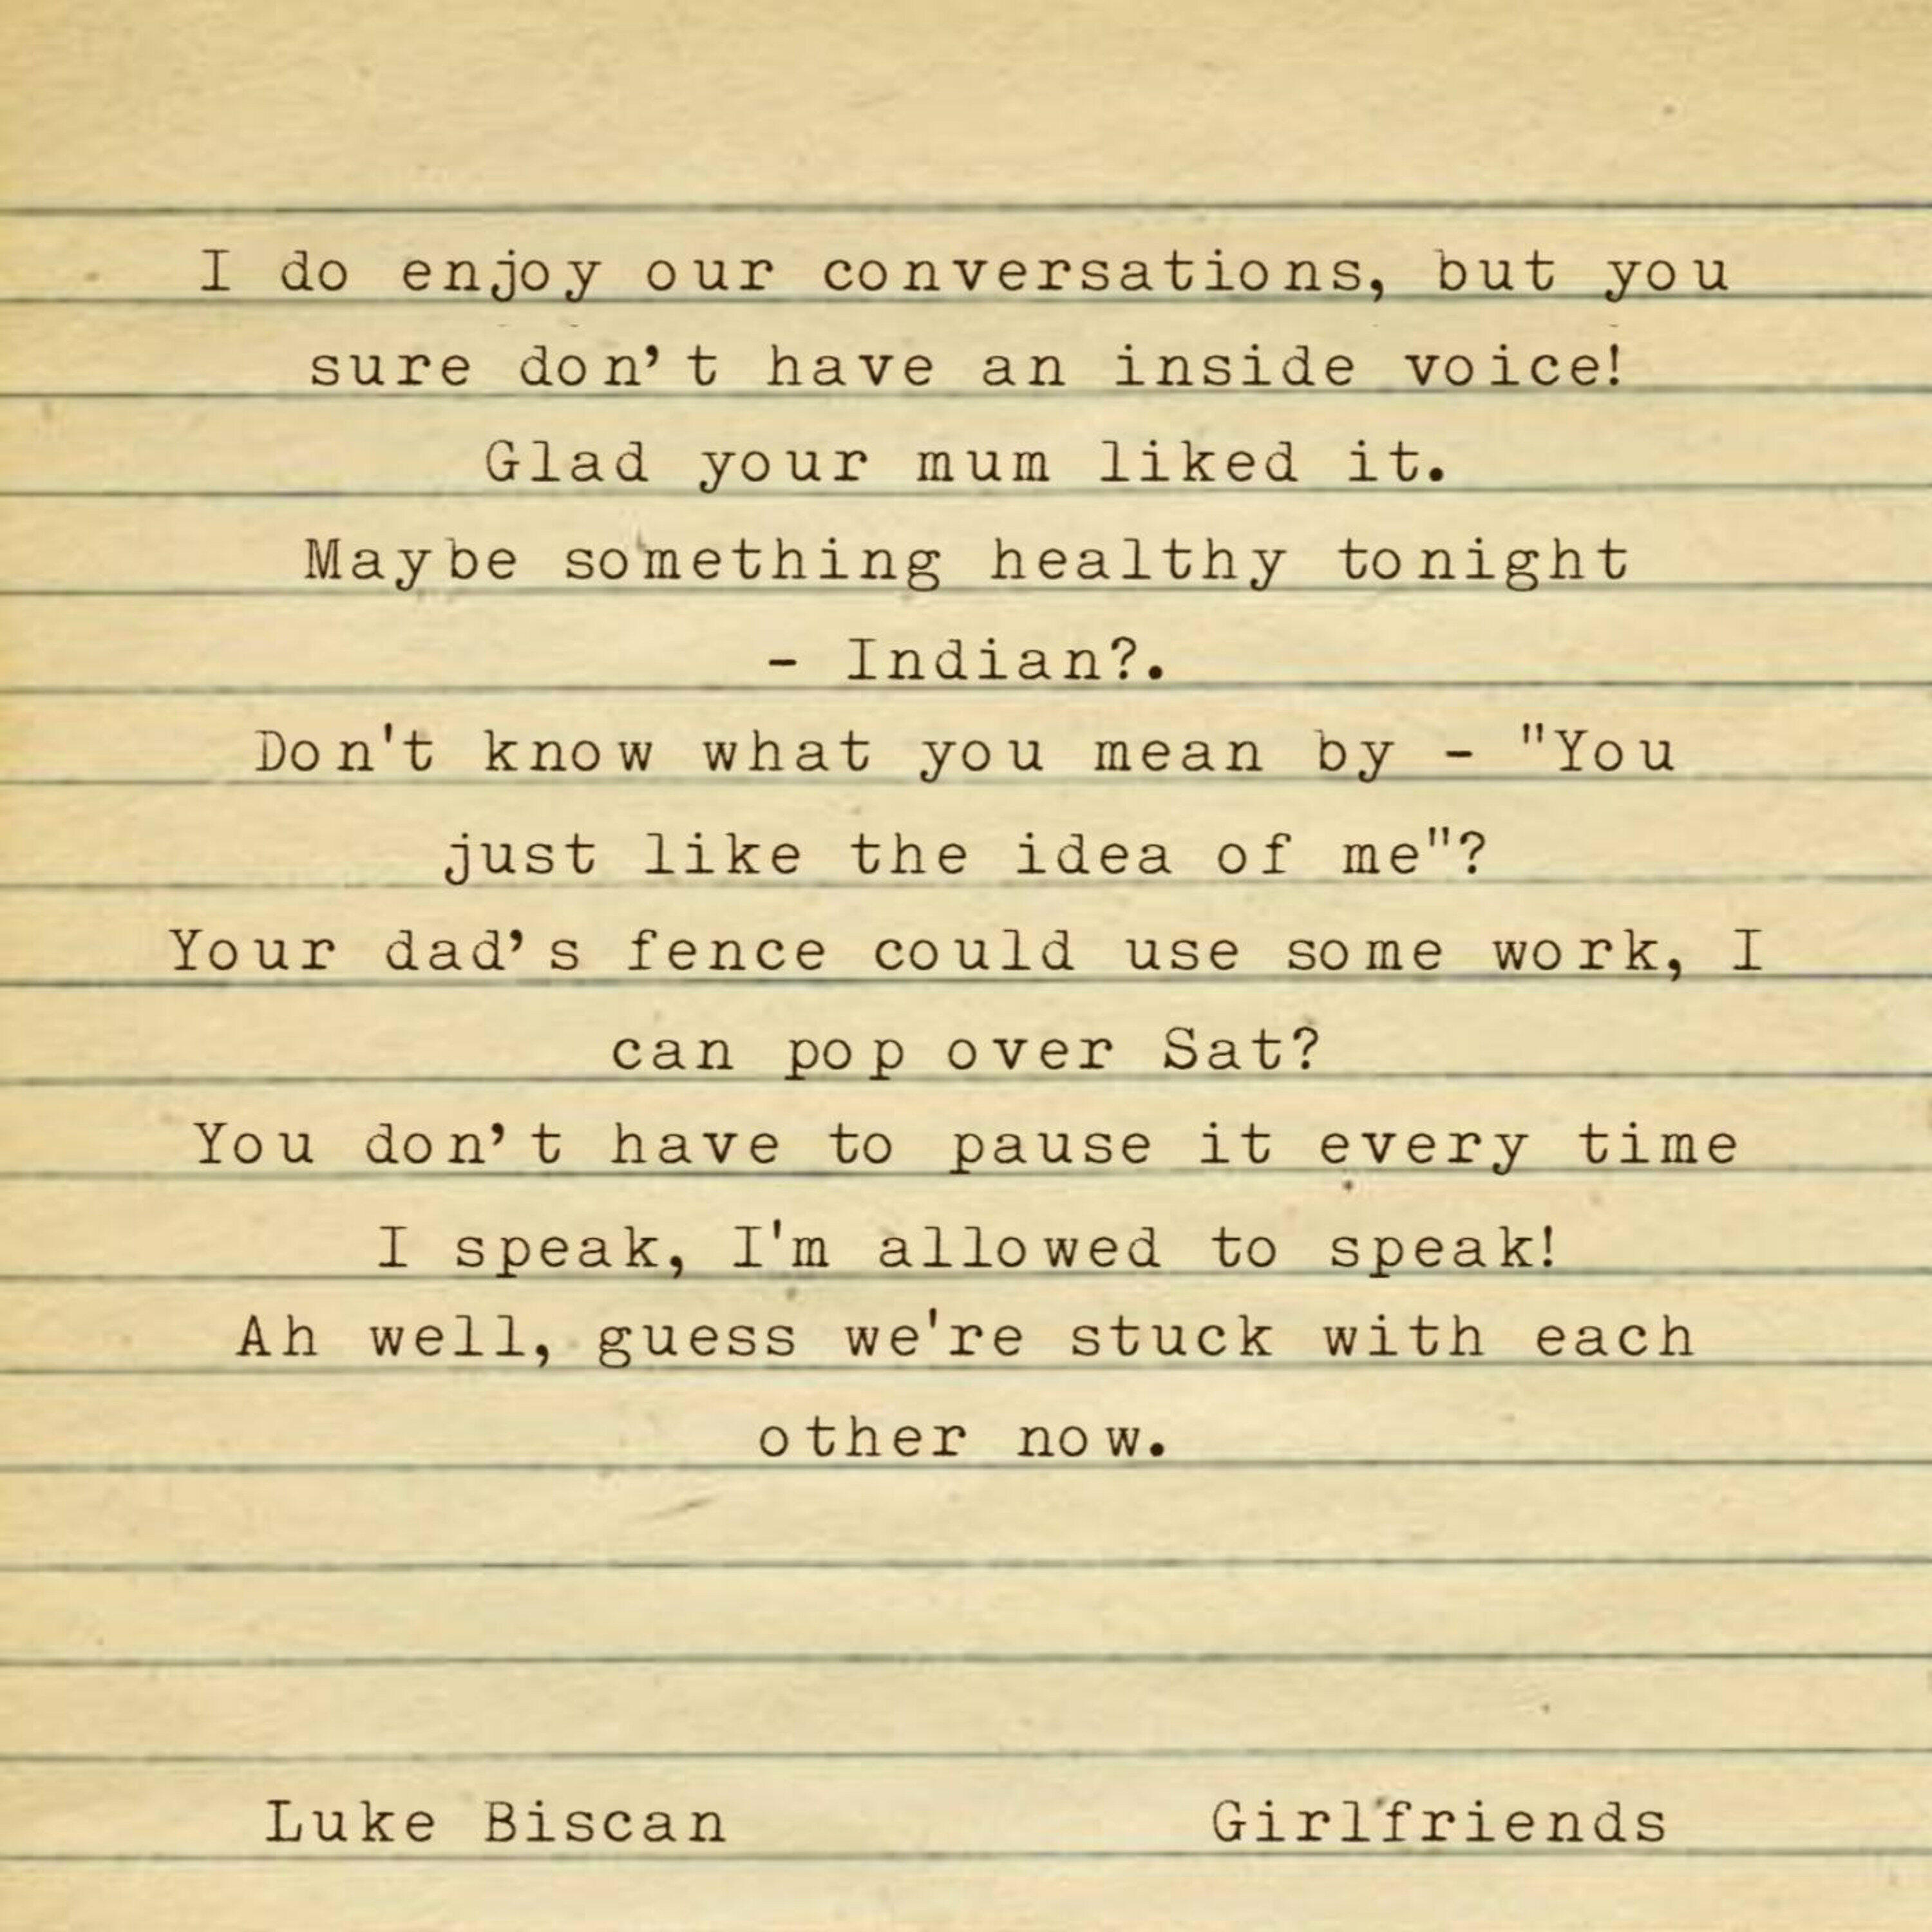 I do enjoy our conversations, but you
sure don’t have an inside voice!
Glad your mum liked it.
Maybe something healthy tonight
- Indian?.
Don't know what you mean by - "You
just like the idea of me"?
Your dad’s fence could use some work, I
can pop over Sat?
You don’t have to pause it every time
I speak, I'm allowed to speak!
Ah well, guess we're stuck with each
other now.
Luke Biscan
Girlfriends